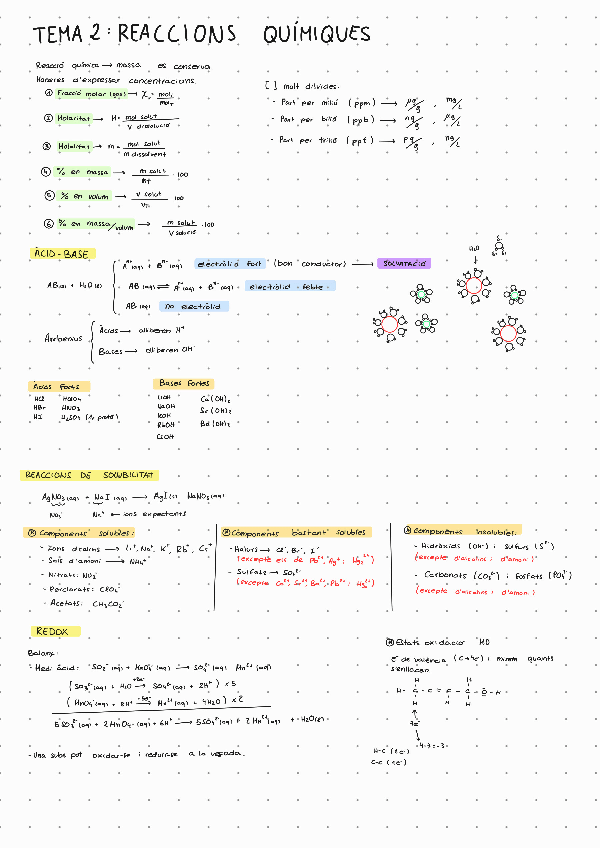 TEMA 2: REACCIONS QUÍMIQUES
Reacció química → massa es conserva
Maneres d'expressar concentracions
① Fracció molar (gas) → χi = moli / molT
② Molaritat → M = mol solut / V dissolució
③ Molalitat → m = mol solut / m dissolvent
④ % en massa → m solut / mT · 100
⑤ % en volum → V solut / VT · 100
⑥ % en massa/volum → m solut / V solució · 100
[ ] molt diluïdes:
- Part per milió (ppm) → µg/g , mg/L
- Part per bilió (ppb) → ng/g , µg/L
- Part per trilió (ppt) → pg/g , ng/L
ÀCID-BASE
AB(s) + H2O(l)
Aⁿ⁺(aq) + Bⁿ⁻(aq) electròlid fort (bon conductor) → SOLVATACIÓ
AB(aq) ⇌ Aⁿ⁺(aq) + Bⁿ⁻(aq) electròlid feble
AB(aq) no electròlid
H2O
Arrhenius
Àcids → alliberen H⁺
Bases → alliberen OH⁻
Àcids forts
HCl HClO4
HBr HNO3
HI H2SO4 (1r protó)
Bases fortes
LiOH Ca(OH)2
NaOH Sr(OH)2
KOH Ba(OH)2
RbOH
CsOH
REACCIONS DE SOLUBILITAT
AgNO3(aq) + NaI(aq) → AgI(s) NaNO3(aq)
NO3⁻ Na⁺ ← ions espectants
① Components solubles:
- Ions alcalins → Li⁺, Na⁺, K⁺, Rb⁺, Cs⁺
- Sals d'amoni → NH4⁺
- Nitrats: NO3⁻
- Perclorats: ClO4⁻
- Acetats: CH3CO2⁻
② Components "bastant" solubles
- Halurs → Cl⁻, Br⁻, I⁻
(excepte els de Pb²⁺, Ag⁺, Hg2²⁺)
- Sulfats → SO4²⁻
(excepte Ca²⁺, Sr²⁺, Ba²⁺, Pb²⁺, Hg2²⁺)
③ Components insolubles:
- Hidròxids (OH⁻) i sulfurs (S²⁻)
(excepte d'alcalins i d'amoni)
- Carbonats (CO3²⁻) i fosfats (PO4³⁻)
(excepte d'alcalins i d'amoni)
REDOX
Balanç:
- Medi àcid: SO3²⁻(aq) + MnO4⁻(aq) → SO4²⁻(aq) Mn²⁺(aq)
(SO3²⁻(aq) + H2O → SO4²⁻(aq) + 2H⁺) x 5
(MnO4⁻(aq) + 8H⁺ → Mn²⁺(aq) + 4H2O) x 2
5SO3²⁻(aq) + 2MnO4⁻(aq) + 6H⁺ → 5SO4²⁻(aq) + 2Mn²⁺(aq) + H2O(l)
- Una subs pot oxidar-se i reduir-se a la vegada.
Estats oxidació
e⁻ de valència (C→4e⁻) i mirem quants
H H
H - C - C = C - C - O - H
H H H
7e⁻
4-7=-3
H-C (2e⁻)
C-C (1e⁻)